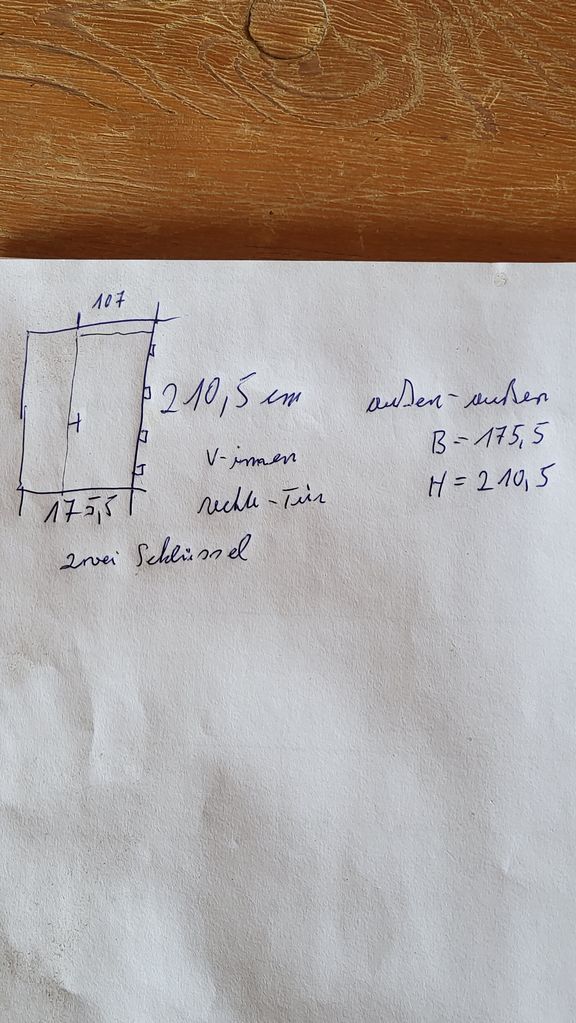 107
210,5 cm
V-innen
rechte-Tür
175,5
zwei Schlüssel
außen-außen
B=175,5
H=210,5